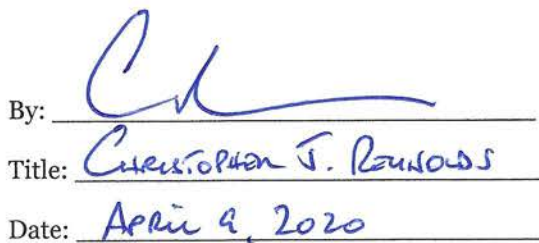 By:
Title: CHRISTOPHER J. REYNOLDS
Date: APRIL 9, 2020